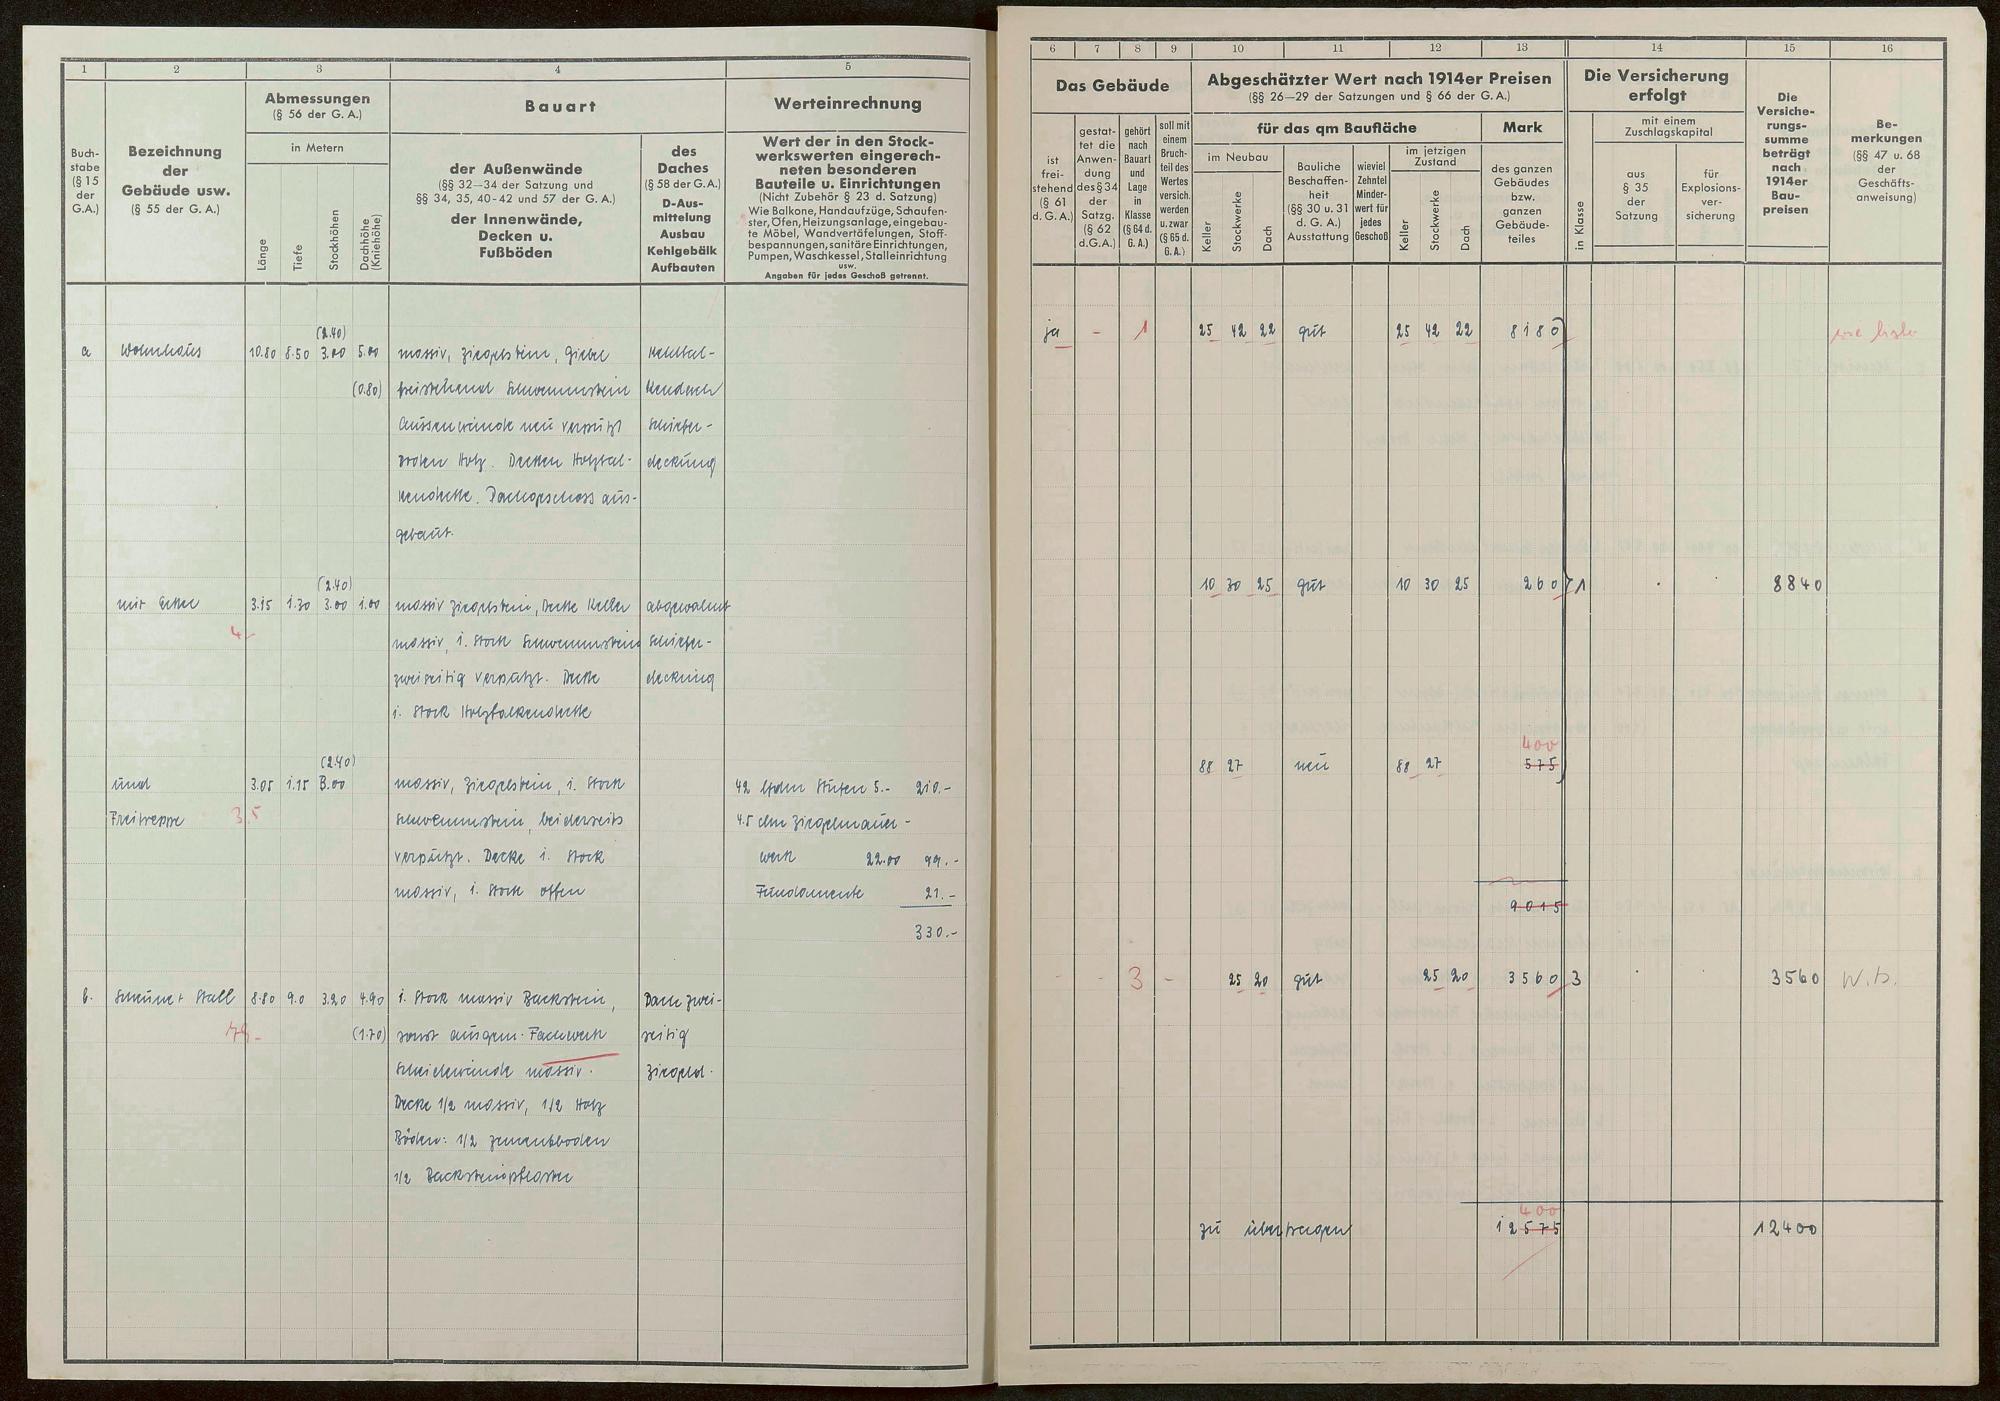 1 2 3 4 5
Buch-
stabe
(§ 15
der
G.A.)
Bezeichnung
der
Gebäude usw.
(§ 55 der G. A.)
Abmessungen
(§ 56 der G. A.)
in Metern
Länge
Tiefe
Stockhöhen
Dachhöhe
(Kniehöhe)
Bauart
der Außenwände
(§§ 32—34 der Satzung und
§§ 34, 35, 40-42 und 57 der G. A.)
der Innenwände,
Decken u.
Fußböden
des
Daches
(§ 58 der G.A.)
D-Aus-
mittelung
Ausbau
Kehlgebälk
Aufbauten
Werteinrechnung
Wert der in den Stock-
werkswerten eingerech-
neten besonderen
Bauteile u. Einrichtungen
(Nicht Zubehör § 23 d. Satzung)
Wie Balkone, Handaufzüge, Schaufen-
ster, Öfen, Heizungsanlage, eingebau-
te Möbel, Wandvertäfelungen, Stoff-
bespannungen, sanitäre Einrichtungen,
Pumpen, Waschkessel, Stalleinrichtung
usw.
Angaben für jedes Geschoß getrennt.
(2.40)
a Wohnhaus 10.80 8.50 3.00 5.00 massiv, Ziegelstein, Giebel Kehlbal-
(0.80) freistehend Schwemmstein kendach
Aussenwände neu verputzt Schiefer-
Boden Holz. Decken Holzbal- deckung
kendecke. Dachgeschoss aus-
gebaut.
(2.40)
mit Erker 3.15 1.30 3.00 1.00 massiv Ziegelstein, Decke Keller abgewalmt
4.- massiv, 1. Stock Schwemmstein Schiefer-
zweiseitig verputzt. Decke deckung
1. Stock Holzbalkendecke
(2.40)
und 3.05 1.15 3.00 massiv, Ziegelstein, 1. Stock 42 lfdm Stufen 5.- 210.-
Freitreppe 3.5 Schwemmstein, beiderseits 4.5 cbm Ziegelmauer-
verputzt. Decke 1. Stock werk 22.00 99.-
massiv, 1. Stock offen Fundamente 21.-
330.-
b. Scheune + Stall 8.80 9.0 3.20 4.90 1. Stock massiv Backstein, Dach zwei-
79.- (1.70) sonst ausgem. Fachwerk seitig
Scheidewände massiv. Ziegeld.
Decke 1/2 massiv, 1/2 Holz
Böden: 1/2 Zementboden
1/2 Backsteinpflaster
6 7 8 9 10 11 12 13 14 15 16
Das Gebäude
ist
frei-
stehend
(§ 61
d. G.A.)
gestat-
tet die
Anwen-
dung
des § 34
der
Satzg.
(§ 62
d.G.A.)
gehört
nach
Bauart
und
Lage
in
Klasse
(§ 64 d.
G. A.)
soll mit
einem
Bruch-
teil des
Wertes
versich.
werden
u. zwar
(§ 65 d.
G. A.)
Abgeschätzter Wert nach 1914er Preisen
(§§ 26—29 der Satzungen und § 66 der G. A.)
für das qm Baufläche
Mark
im Neubau
Keller
Stockwerke
Dach
Bauliche
Beschaffen-
heit
(§§ 30 u. 31
d. G. A.)
Ausstattung
wieviel
Zehntel
Minder-
wert für
jedes
Geschoß
im jetzigen
Zustand
Keller
Stockwerke
Dach
des ganzen
Gebäudes
bzw.
ganzen
Gebäude-
teiles
Die Versicherung
erfolgt
in Klasse
mit einem
Zuschlagskapital
aus
§ 35
der
Satzung
für
Explosions-
ver-
sicherung
Die
Versiche-
rungs-
summe
beträgt
nach
1914er
Bau-
preisen
Be-
merkungen
(§§ 47 u. 68
der
Geschäfts-
anweisung)
ja - 1 25 42 22 gut 25 42 22 8180
10 30 25 gut 10 30 25 260 1 8840
400
88 27 neu 88 27 575
9015
- - 3 - 25 20 gut 25 20 3560 3 3560 W.b.
400
zu übertragen 12575 12400